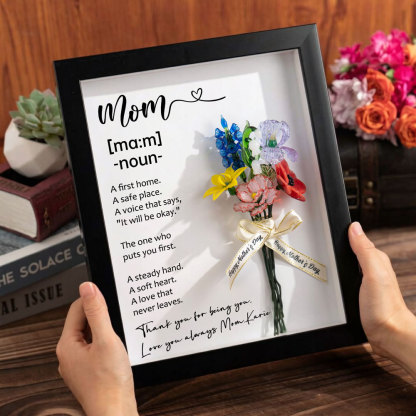 Mom
[ma:m]
-noun-
A first home.
A safe place.
A voice that says,
"It will be okay."
The one who
puts you first.
A steady hand.
A soft heart.
A love that
never leaves.
Thank you for being you.
Love you always Mom.Karie
Happy Mother's Day!
Happy Mother's Day!
THE SOLACE
IAL ISSUE